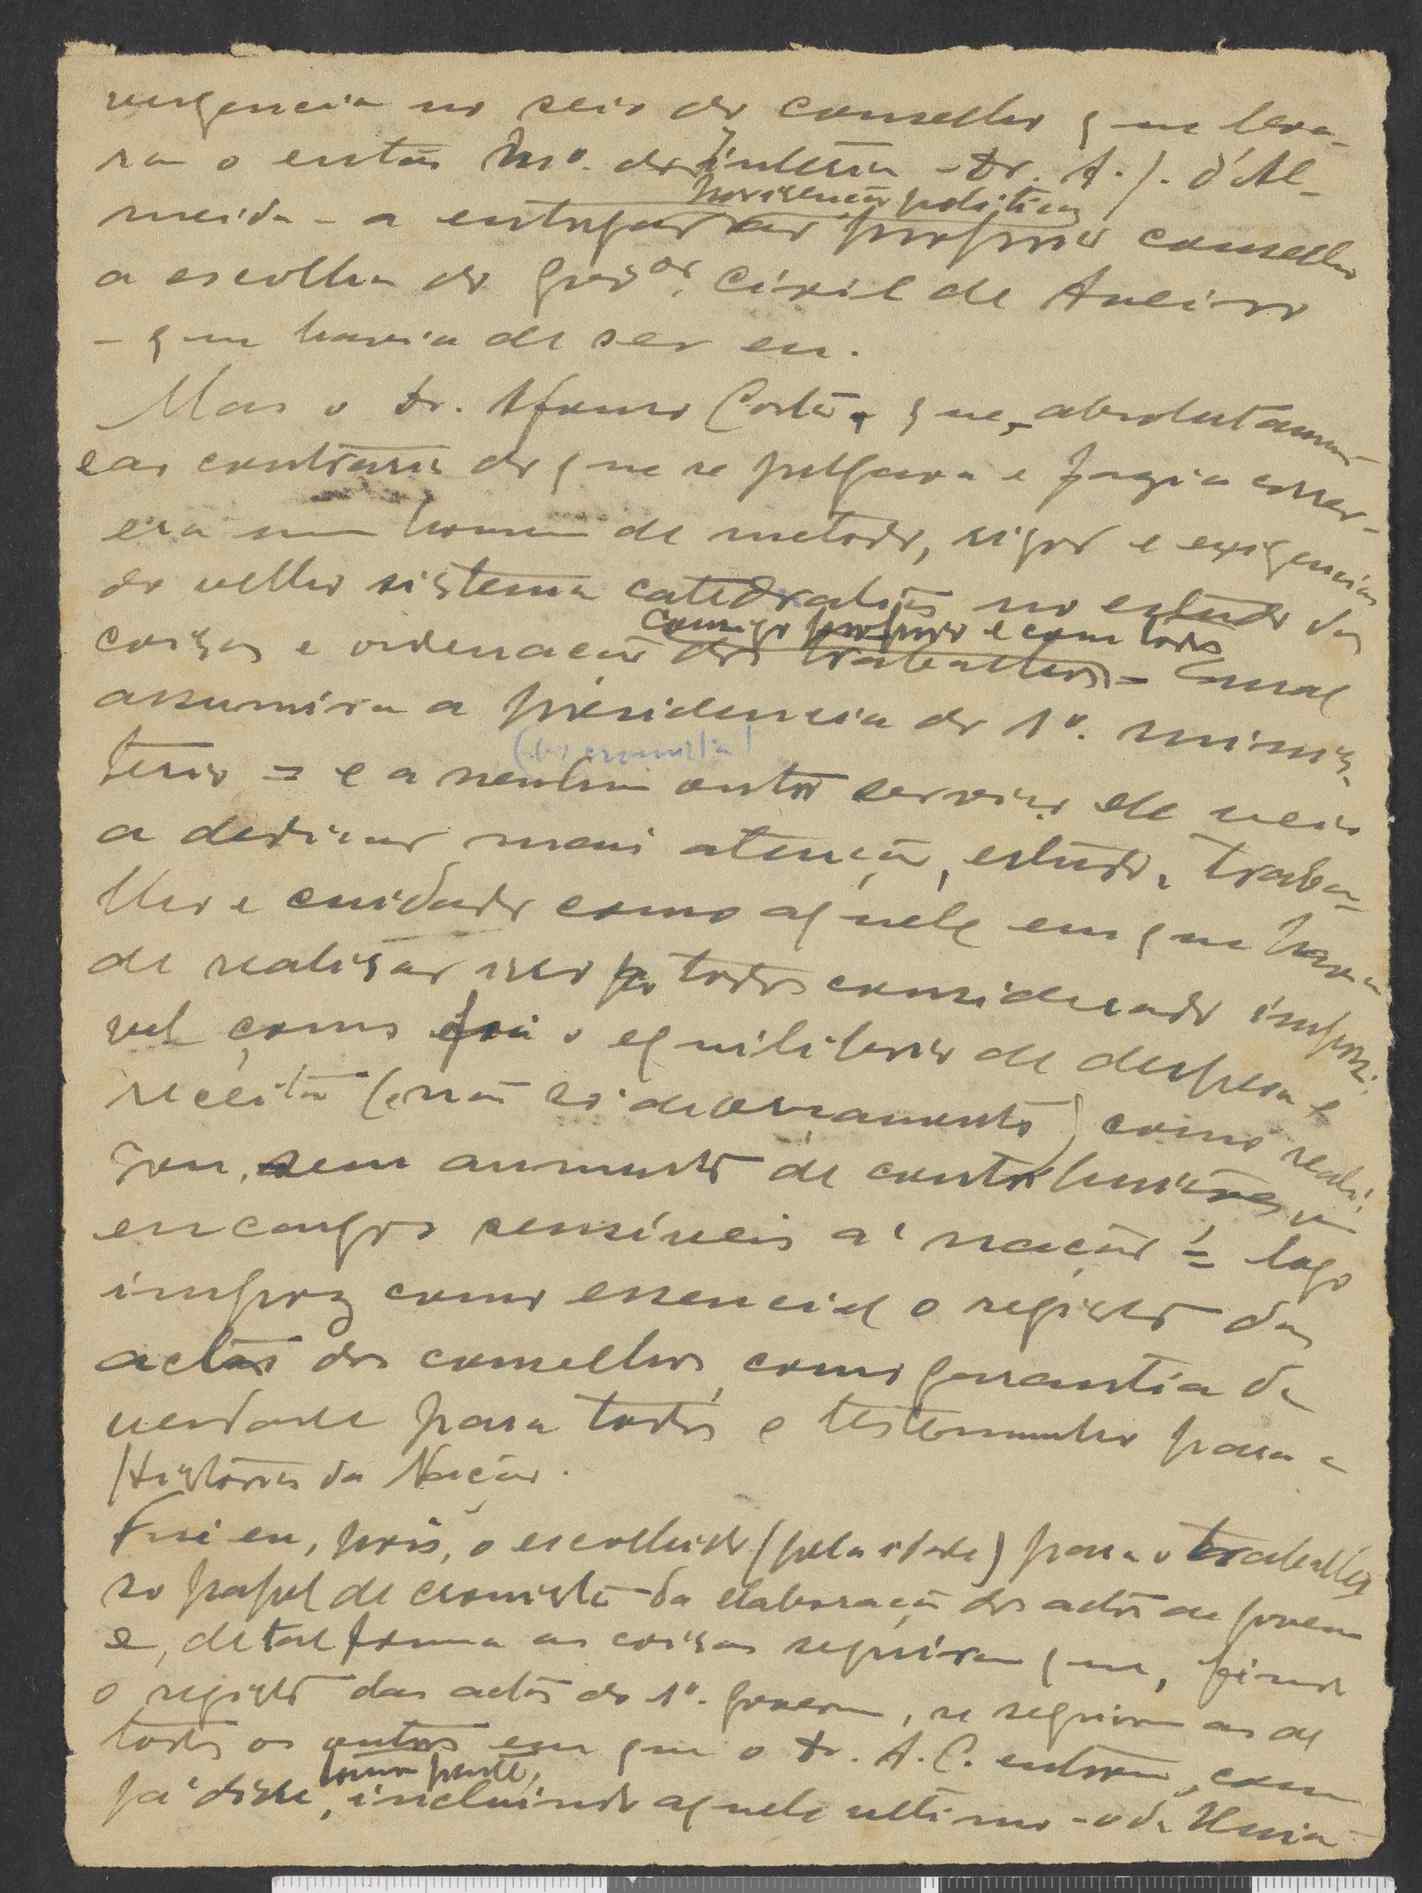 vergencia no seio do conselho que leva-
ra o então Mo. do Interior - dr. A. J. d'Al-
meida - a entregar ao proprio conselho
a escolha do Govor. Civil de Aveiro
- que havia de ser eu.
Mas o dr. Afonso Costa, que, absolutamen-
e ao contrario do que se julgava e fazia correr
era um homem de metodo, rigor e exigencias
do velho sistema no estudo das
coisas e ordenação dos trabalhos =
comsigo proprio e com todos
assumira a presidencia do 1º. minis-
terio = e a nenhum outro serviço ele veio
a dedicar mais atenção, estudo, traba-
lho e cuidado como aquele em que havia
de realisar isso por todos considerado impossi-
vel como foi o equilibrio de despesa e
receita (e não só de orçamento) como reali-
sou, sem aumento de contribuições
encargos sensiveis á nação = logo
impoz como essencial o registo das
actas dos conselhos, como garantia da
verdade para todos e testemunho para a
Historia da Nação.
Fui eu, pois, o escolhido (pela idade) para o trabalho-
so papel de cronista da elaboração dos actos de governo
e, de tal forma as coisas seguiram que, findo
o registo das actas do 1º. governo, se seguiram as de
todos os outros em que o dr. A. C. entrou, como
tomou parte,
já disse, incluindo aquele ultimo - o da União